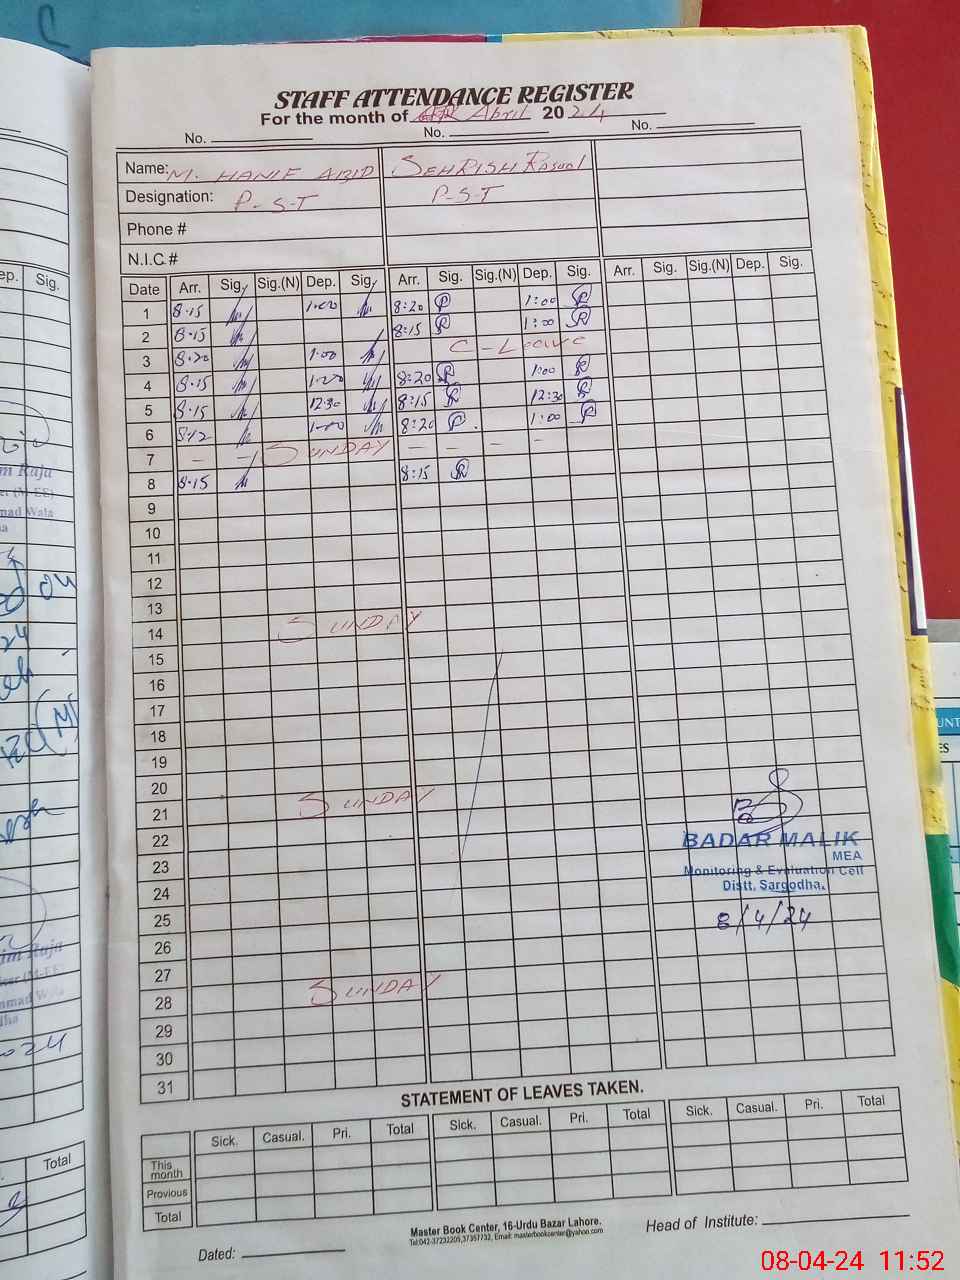 STAFF ATTENDANCE REGISTER
For the month of April 2024
No. No. No.
Name: M. HANIF ABID SEHRISH Rasool
Designation: P-S-T P-S-T
Phone #
N.I.C.#
Date Arr. Sig. Sig.(N) Dep. Sig. Arr. Sig. Sig.(N) Dep. Sig. Arr. Sig. Sig.(N) Dep. Sig.
1 8-15 1-00 8:20 1:00
2 8-15 8:15 1:00
3 8-20 1-00 C-Leave
4 8-15 1-00 8:20 1:00
5 8-15 12:30 8:15 12:30
6 8:12 1-00 8:20 1:00
7 - - SUNDAY - - - -
8 8-15 8:15
9
10
11
12
13
14 SUNDAY
15
16
17
18
19
20
21 SUNDAY
22
23
24
25
26
27
28 SUNDAY
29
30
31
BADAR MALIK
MEA
Monitoring & Evaluation Cell
Distt. Sargodha.
8/4/24
STATEMENT OF LEAVES TAKEN.
Sick. Casual. Pri. Total Sick. Casual. Pri. Total Sick. Casual. Pri. Total
This month
Previous
Total
Master Book Center, 16-Urdu Bazar Lahore.
Tel:042-37232205,37357732, Email: masterbookcenter@yahoo.com
Head of Institute:
Dated:
Dep. Sig.
Total
08-04-24 11:52